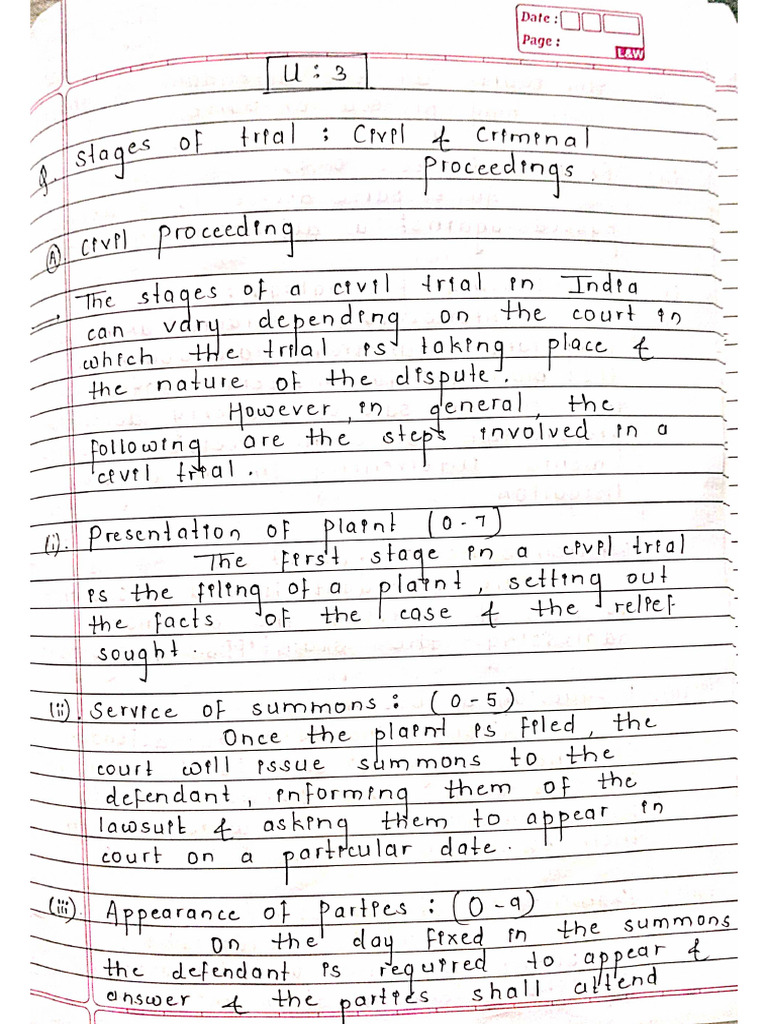 Date :
Page :
L&W
U : 3
Q. Stages of trial : Civil & Criminal
Proceedings.
(A). Civil Proceeding
The stages of a civil trial in India
can vary depending on the court in
which the trial is taking place &
the nature of the dispute.
However, in general, the
following are the steps involved in a
civil trial.
(i). Presentation of plaint (O-7)
The first stage in a civil trial
is the filing of a plaint, setting out
the facts of the case & the relief
sought.
(ii). Service of summons : (O-5)
Once the plaint is filed, the
court will issue summons to the
defendant, informing them of the
lawsuit & asking them to appear in
court on a particular date.
(iii). Appearance of Parties : (O-9)
On the day fixed in the summons
the defendant is required to appear &
answer & the parties shall attend